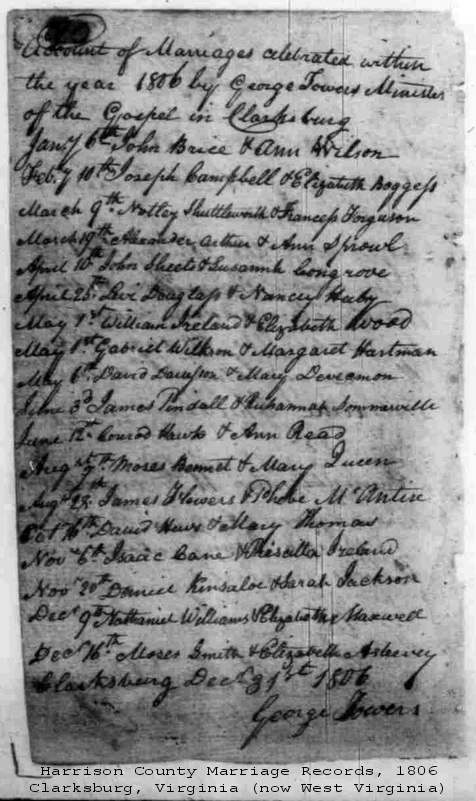 Account of Marriages celebrated within
the year 1806 by George Towers Minister
of the Gospel in Clarksburg
Jany 6th John Brice & Ann Wilson
Feby 10th Joseph Campbell & Elizabeth Boggess
March 9th Notley Shuttleworth & Francess Forguson
March 19th Alexander Arthur & Ann Sprowl
April 10th John Sheets & Susannah Congrove
April 25th Levi Douglass & Nancy
May 1st William Ireland & Elizabeth Wood
May 1st Gabriel Wilkson & Margaret Hartman
May 6th David Davisson & Mary Devremon
June 3d James Tindall & Sommerville
June 12th Conrod Hawk & Ann Read
Augst 7th Moses Bennet & Mary Queen
Augt 28th James Flowers & Phebe McAntire
Oct 16th David Hews & Mary Thomas
Novr 6th Isaac Cane & Priscilla Ireland
Novr 20th Daniel Kinsaloe & Sarah Jackson
Decr 9th Nathaniel Williams & Elizabeth Maxwell
Decr 16th Moses Smith & Elizabeth
Clarksburg Decr 31st 1806
George Towers
Harrison County Marriage Records, 1806
Clarksburg, Virginia (now West Virginia)